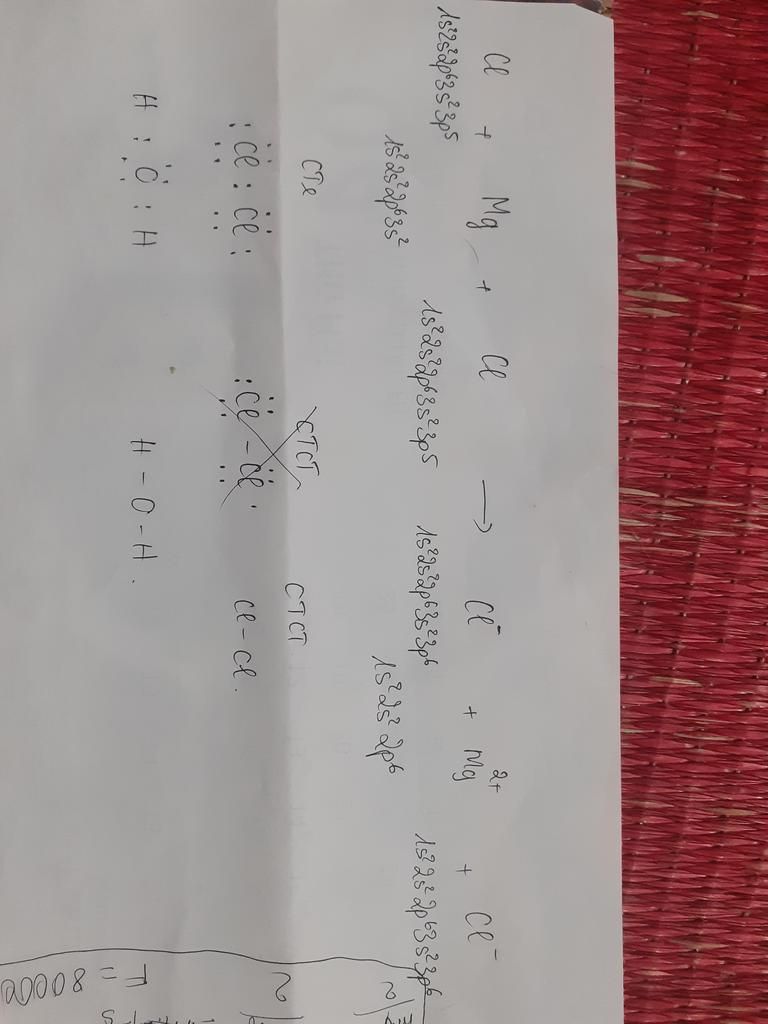 Cl + Mg + Cl → Cl⁻ + Mg²⁺ + Cl⁻
1s²2s²2p⁶3s²3p⁵ 1s²2s²2p⁶3s² 1s²2s²2p⁶3s²3p⁵ 1s²2s²2p⁶3s²3p⁶ 1s²2s²2p⁶ 1s²2s²2p⁶3s²3p⁶
CTe CTCT CTCT
:Cl:Cl: :Cl-Cl: Cl-Cl.
H:O:H H-O-H.
80000